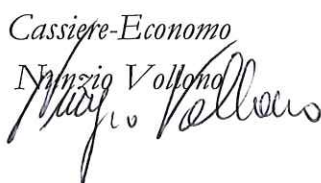 Cassiere-Economo
Nunzio Vollono
Nunzio Vollono